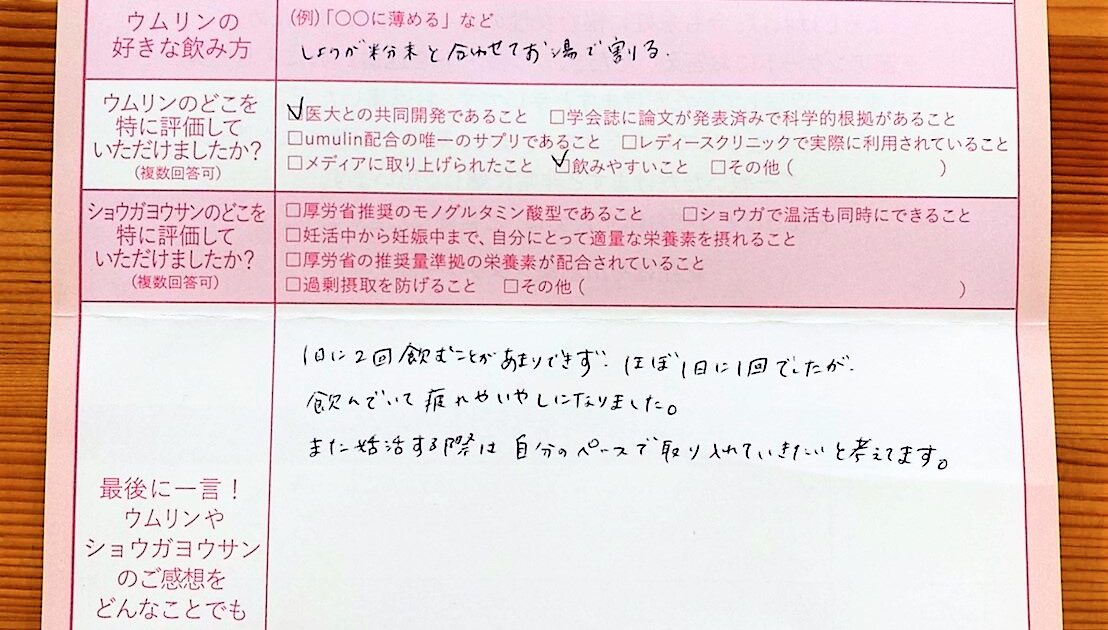 ウムリンの
好きな飲み方
（例）「〇〇に薄める」など
しょうが粉末と合わせてお湯で割る.
ウムリンのどこを
特に評価して
いただけましたか？
（複数回答可）
☑医大との共同開発であること　□学会誌に論文が発表済みで科学的根拠があること
□umulin配合の唯一のサプリであること　□レディースクリニックで実際に利用されていること
□メディアに取り上げられたこと　☑飲みやすいこと　□その他（　　　　　　　）
ショウガヨウサンのどこを
特に評価して
いただけましたか？
（複数回答可）
□厚労省推奨のモノグルタミン酸型であること　□ショウガで温活も同時にできること
□妊活中から妊娠中まで、自分にとって適量な栄養素を摂れること
□厚労省の推奨量準拠の栄養素が配合されていること
□過剰摂取を防げること　□その他（　　　　　　　　　　　　　　　　　　）
1日に2回飲むことがあまりできず、ほぼ1日に1回でしたが、
飲んでいて疲れやいやしになりました。
また妊活する際は自分のペースで取り入れていきたいと考えてます。
最後に一言！
ウムリンや
ショウガヨウサン
のご感想を
どんなことでも